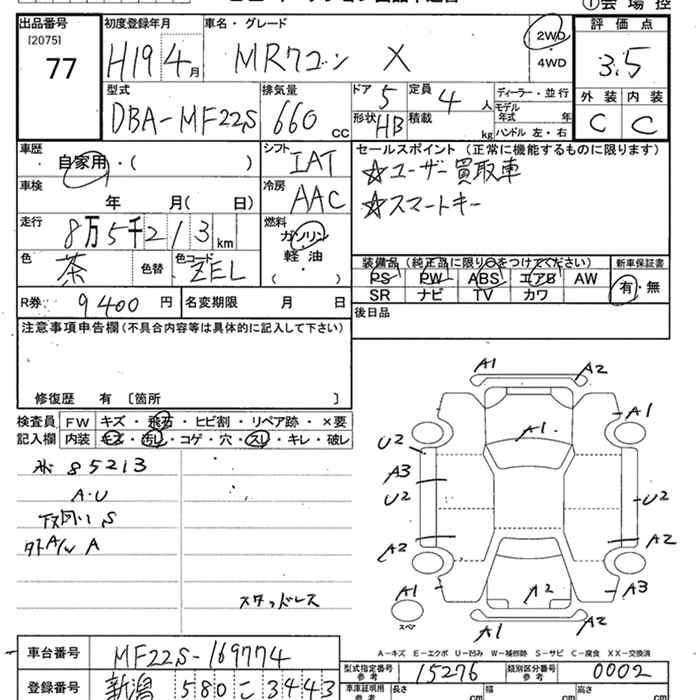 出品番号 [2075] 77
初度登録年月 H19 4月
車名・グレード MRワゴン X
2WD・4WD
評価点 3.5
型式 DBA-MF22S
排気量 660 CC
ドア 5
定員 4人
形状 HB
積載 kg
ディーラー・並行
モデル年式 年
ハンドル 左・右
外装 内装
C C
車歴 自家用・( )
シフト IAT
セールスポイント (正常に機能するものに限ります)
☆ユーザー買取車
☆スマートキー
車検 年 月( 日)
冷房 AAC
走行 8万5千213 km
燃料 ガソリン 軽油 ( )
色 茶 色替 色コード ZEL
装備品 (純正品に限り○をつけてください) 新車保証書
PS PW ABS エアB AW
SR ナビ TV カワ
有・無
R券 9400 円 名変期限 月 日
後日品
注意事項申告欄(不具合内容等は具体的に記入して下さい)
修復歴 有 [箇所 ]
検査員 FW キズ・飛石・ヒビ割・リペア跡・×要
記入欄 内装 キズ・汚レ・コゲ・穴・スレ・キレ・破レ
85213
A・U
S
A
スタッドレス
A1 A2
A1
A1
U2
A3
U2 U2
A2 A2
A1 A2 A3
スペア
A1 A2
A-キズ E-エクボ U-凹み W-補修跡 S-サビ C-腐食 XX-交換済
車台番号 MF22S-169774
型式指定番号 参考 15276 類別区分番号 参考 0002
登録番号 新潟 580 こ 3443
車庫証明用 参考 長さ cm 幅 cm 高さ cm